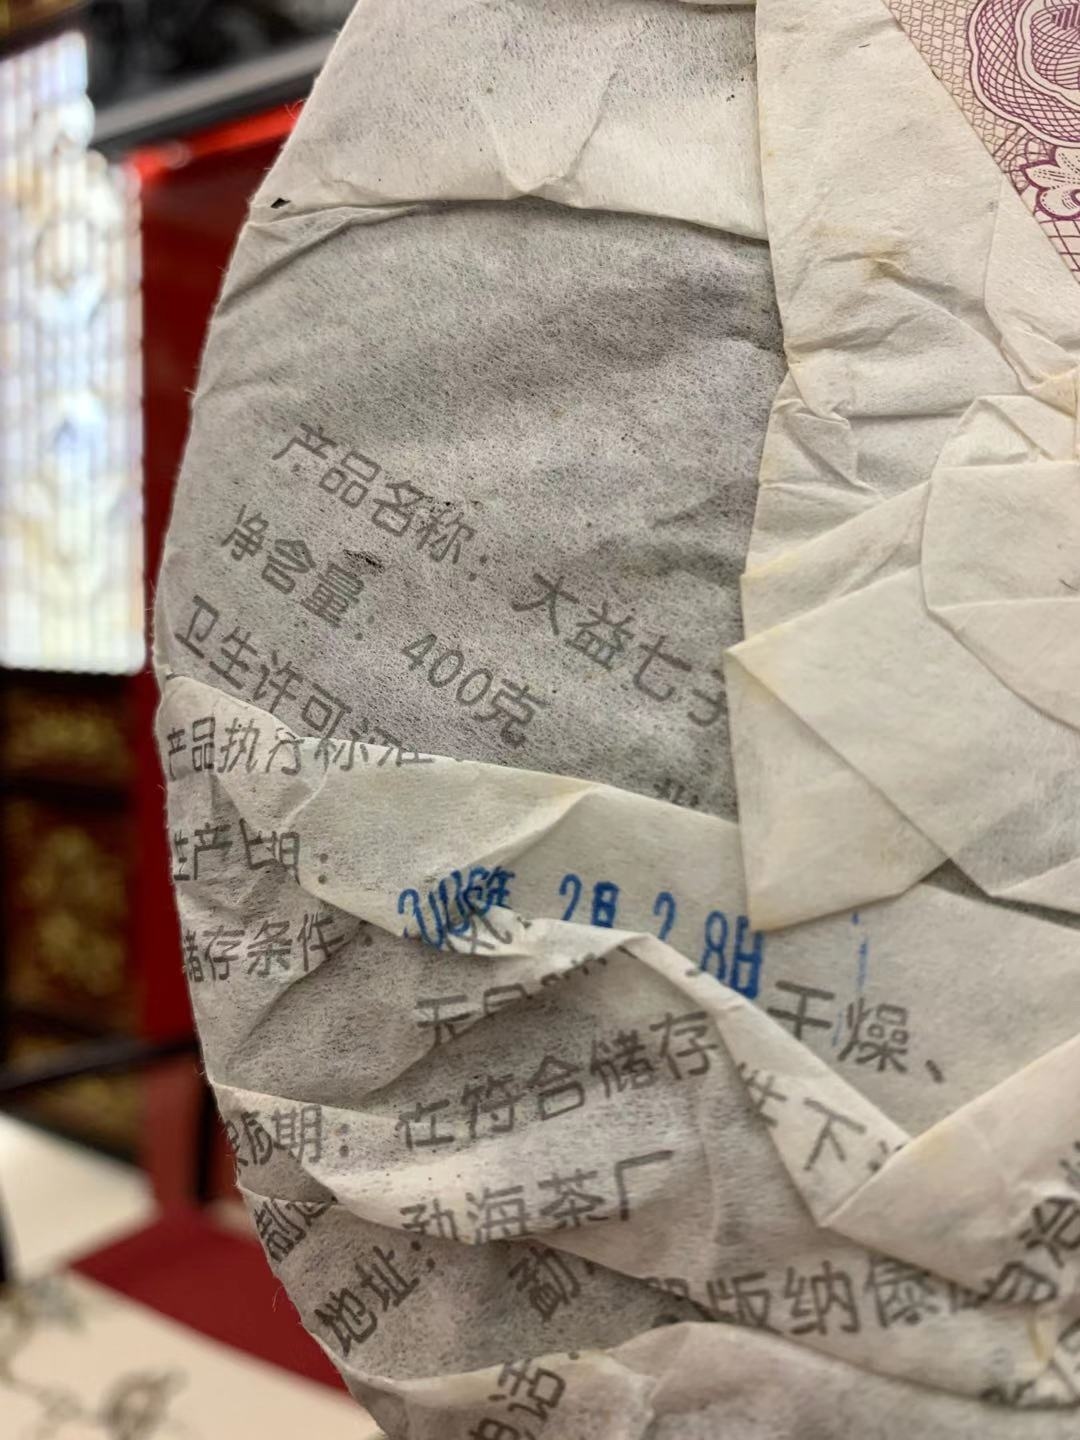 产品名称：大益七子
净含量：400克
卫生许可
产品执行标准
生产日期：2006年 2月28日
储存条件：
干燥、
保质期：在符合储存 件下
制造 勐海茶厂
地址：勐 版纳傣 自治
电话：